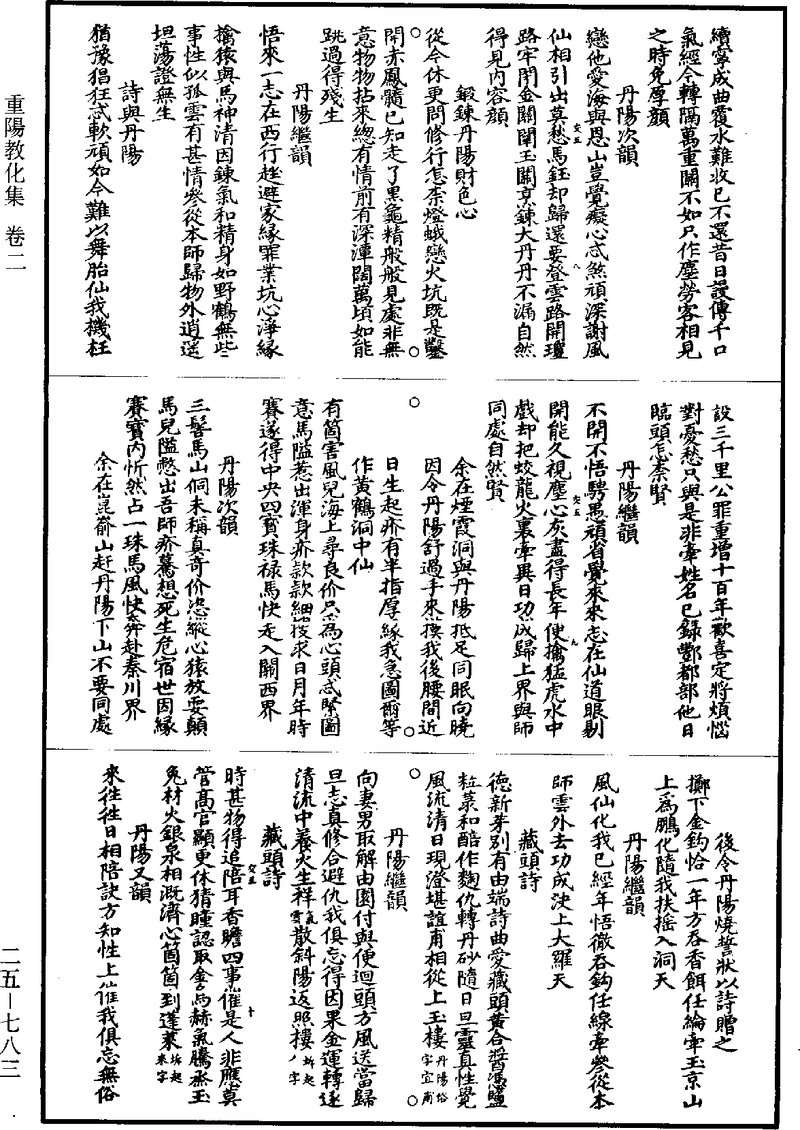 重陽教化集 卷二
二五—七八三
續寧成曲覆水難收已不還昔日謾傳千口
氣經今轉隔萬重關不如只作塵勞客相見
之時免厚顏
丹陽次韻
戀他愛海與恩山豈覺癡心忒煞頑深謝風
仙相引出莫愁馬鈺却歸還要登雲路開瓊
路牢閉金關闡玉關烹鍊大丹丹不漏自然
得見內容顏
鍛鍊丹陽財色心
從今休更問修行怎柰燈蛾戀火坑既是鑿
開赤鳳髓已知走了黑龜精般般見處非無
意物物拈來總有情前有深潭闊萬頃如能
跳過得殘生
丹陽繼韻
悟來一志在西行趓避家緣罪業坑心淨緣
擒猿與馬神清因鍊氣和精身如野鶴無些
事性似孤雲有甚情參從本師歸物外逍遥
坦蕩證無生
詩與丹陽
猶豫猖狂忒軟頑如今難以舞胎仙我機枉
設三千里公罪重增十百年歡喜定將煩惱
對憂愁只與是非牽姓名已録酆都部他日
臨頭怎柰賢
丹陽繼韻
不開不悟騁愚頑省覺來來志在仙道眼剔
開能久視塵心灰盡得長年便擒猛虎水中
戲却把蛟龍火裏牽異日功成歸上界與師
同處自然賢
余在煙霞洞與丹陽抵足同眠向曉
因令丹陽舒過手來摸我後腰間近
日生起疥有半指厚緣我急圖爾等
作黃鶴洞中仙
有箇害風兒海上尋良价只為心頭忒緊圖
意馬隘惹出渾身疥款款細搜求日月年時
賽遂得中央四寳珠祿馬快走入關西界
丹陽次韻
三髻馬山侗未稱真奇价恣縱心猿放耍顛
馬兒隘憋出吾師疥驀想死生危宿世因緣
賽寳內忻然占一珠馬風快奔赴秦川界
余在崑崳山赶丹陽下山不要同處
後令丹陽燒誓狀以詩贈之
擲下金鈎恰一年方吞香餌任綸牽玉京山
上爲鵬化隨我扶摇入洞天
丹陽繼韻
風仙化我已經年悟徹吞鈎任線牽參從本
師雲外去功成決上大羅天
藏頭詩
德新芽別有由端詩曲愛藏頭黃合醬馮鱸
粒菉和醅作麴仇轉丹砂隨日旦靈真性覺
風流清日現澄堪誼甫相從上玉樓丹陽俗字宜甫
丹陽繼韻
向妻男取解由園付與便迴頭方風送當歸
旦志真修合避仇我俱忘得因果金運轉逐
清流中養火生祥氣散斜陽返照樓拆起ノ字
藏頭詩
時甚物得追陪耳香瞻四事催是人非應莫
管高官顯更休猜瞳認取金烏赫氣騰烝玉
兔材火銀泉相溉濟心箇箇到蓬萊拆起來字
丹陽又韻
來往往日相陪訣方知性上催我俱忘無俗